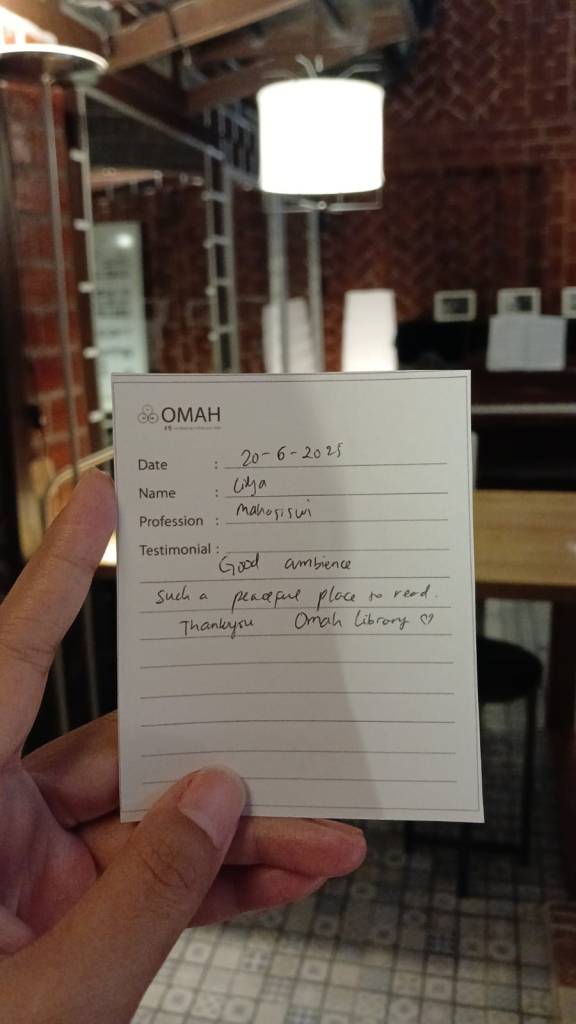 OMAH
Date : 20-6-2025
Name : Lilja
Profession : Mahasiswi
Testimonial :
Good ambience
such a peaceful place to read.
Thankyou Omah Library ♡